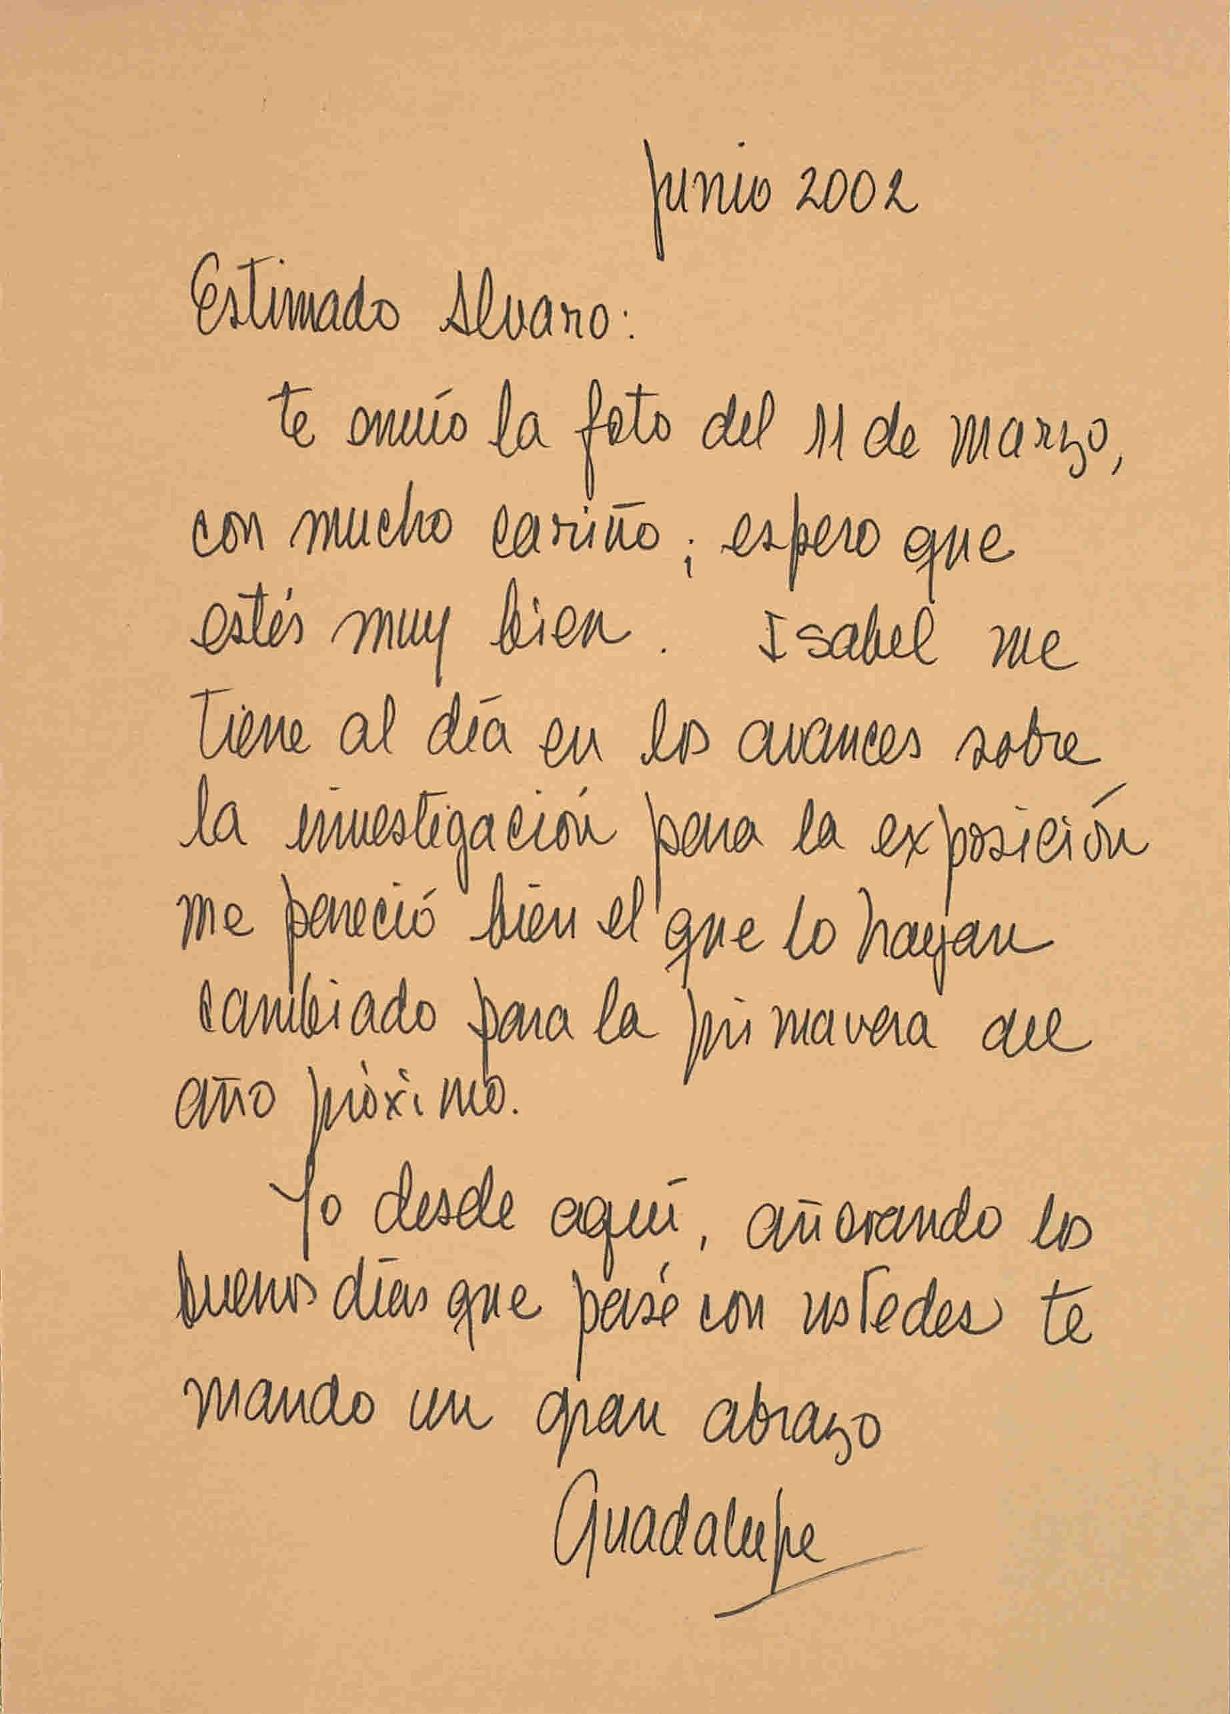 junio 2002
Estimado Alvaro:
te envío la foto del 11 de marzo,
con mucho cariño; espero que
estés muy bien. Isabel me
tiene al día en los avances sobre
la investigación para la exposición
me pareció bien el que lo hayan
cambiado para la primavera del
año próximo.
Yo desde aquí, añorando los
buenos días que pasé con ustedes te
mando un gran abrazo
Guadalupe